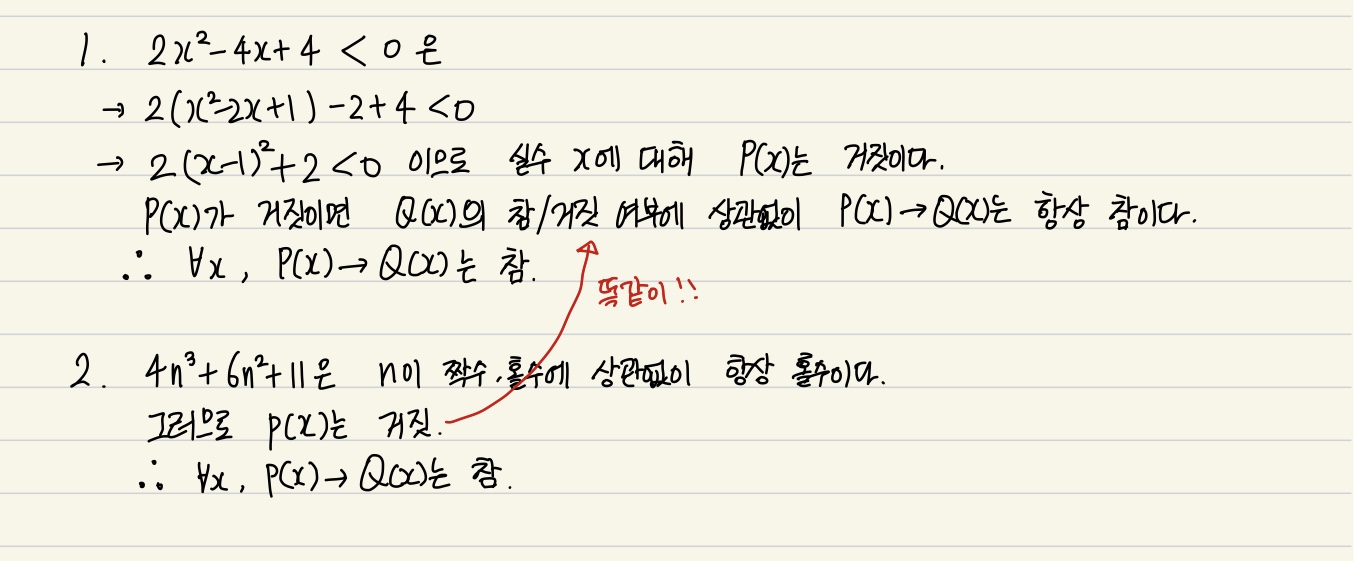 1. 2x²-4x+4 < 0 은
→ 2(x²-2x+1) -2+4 <0
→ 2(x-1)²+2 <0 이므로 실수 x에 대해 P(x)는 거짓이다.
P(x)가 거짓이면 Q(x)의 참/거짓 여부에 상관없이 P(x)→Q(x)는 항상 참이다.
∴ ∀x, P(x)→Q(x)는 참.
똑같이!!
2. 4n³+6n²+11은 n이 짝수,홀수에 상관없이 항상 홀수이다.
그러므로 p(x)는 거짓.
∴ ∀x, p(x)→Q(x)는 참.